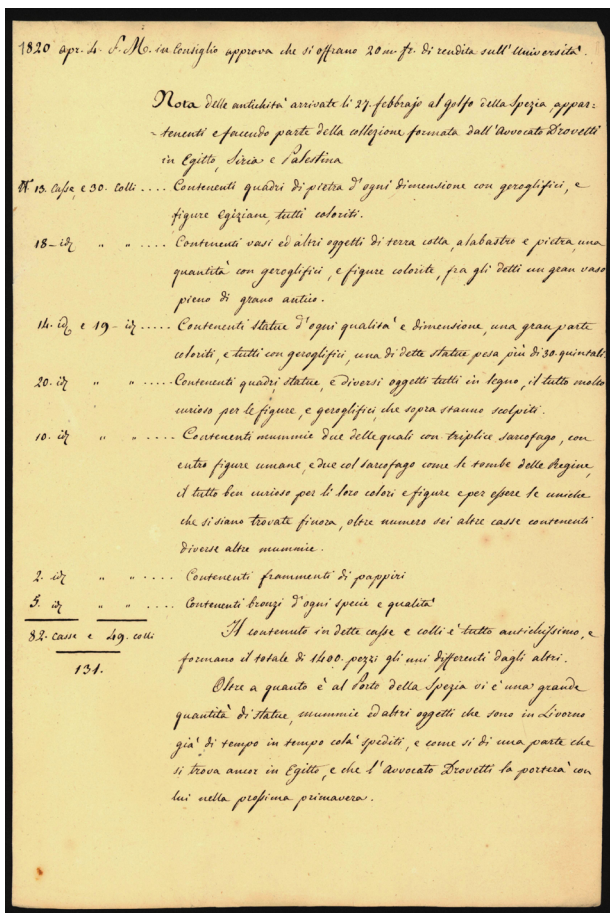 1820 apr. 4. S. M. in Consiglio approva che si offrano 20 m. fr. di rendita sull'Università.
Nota delle antichità arrivate li 27. febbrajo al golfo della Spezia, appar=
=tenenti e facendo parte della collezione formata dall'Avvocato Drovetti
in Egitto, Siria e Palestina
N. 13. Casse, e 30. Colli .... Contenenti quadri di pietra d'ogni dimensione con geroglifici, e
figure Egiziane, tutti coloriti.
18 - id. " " .... Contenenti vasi ed altri oggetti di terra cotta, alabastro e pietra, una
quantità con geroglifici, e figure colorite, fra gli detti un gran vaso
pieno di grano antico.
14. id. e 19 - id. ..... Contenenti statue d'ogni qualità e dimensione, una gran parte
coloriti, e tutti con geroglifici, una di dette statue pesa più di 30. quintali.
20. id. " " ..... Contenenti quadri, statue, e diversi oggetti tutti in legno, il tutto molto
curioso per le figure, e geroglifici, che sopra stanno scolpiti.
10. id. " " ..... Contenenti mummie due delle quali con triplice sarcofago, con
entro figure umane, e due col sarcofago come le tombe delle Regine,
il tutto ben curioso per li loro colori e figure e per essere le uniche
che si siano trovate finora, oltre numero sei altre casse contenenti
diverse altre mummie.
2. id. " " .... Contenenti frammenti di pappiri
5. id. " " .... Contenenti bronzi d'ogni specie e qualità
82. casse e 49. colli
131.
Il contenuto in dette casse e colli è tutto antichissimo, e
formano il totale di 1400. pezzi gli uni differenti dagli altri.
Oltre a quanto è al Porto della Spezia vi è una grande
quantità di statue, mummie ed altri oggetti che sono in Livorno
già di tempo in tempo colà spediti, e come si di una parte che
si trova ancor in Egitto, e che l'Avvocato Drovetti la porterà con
lui nella prossima primavera.